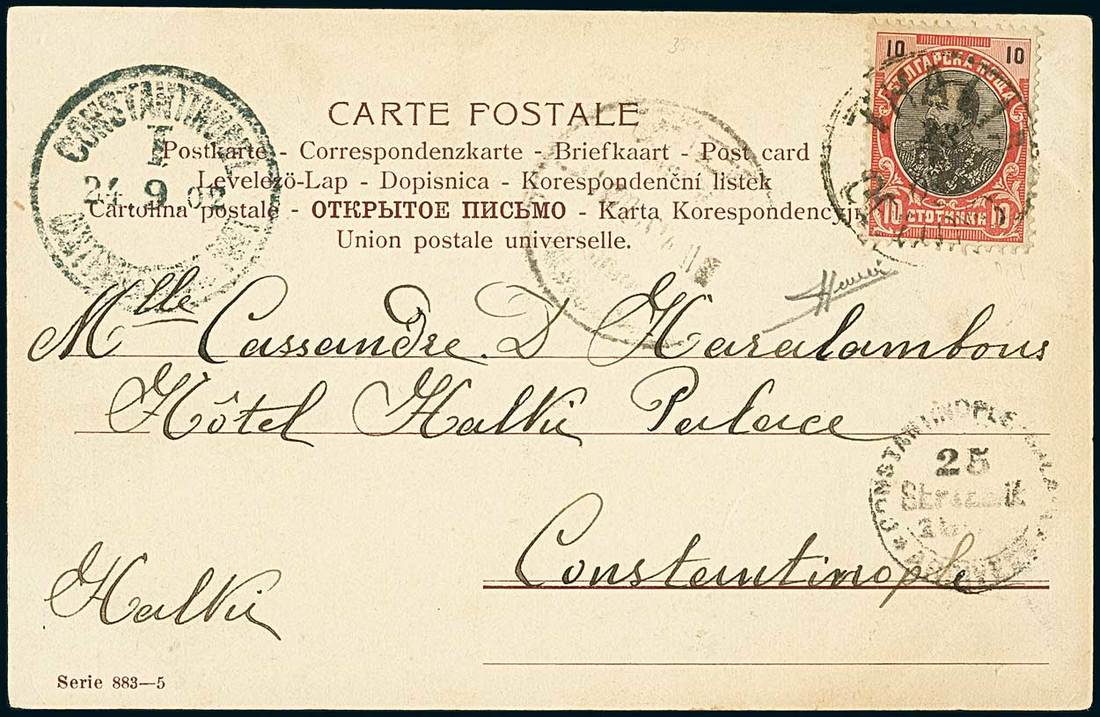 CARTE POSTALE
Postkarte - Correspondenzkarte - Briefkaart - Post card
Levelezö-Lap - Dopisnica - Korespondenční lístek
Cartolina postale - ОТКРЫТОЕ ПИСЬМО - Karta Korespondencyjn
Union postale universelle.
10 10
БЪЛГАРСКА ПОЩА
10 СТОТИНКИ 10
CONSTANTINOPLE
I
24 9 02
Mlle Cassandre. D Haralambous
Hôtel Halki Palace
Constantinople
Halki
CONSTANTINOPLE-GALATA
25
Serie 883—5